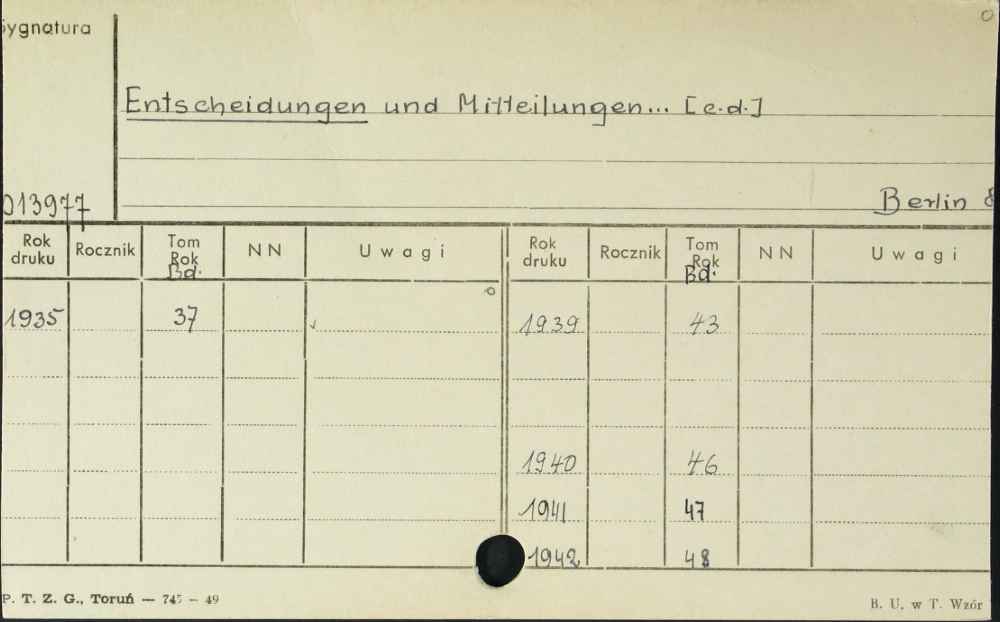 Sygnatura
Entscheidungen und Mitteilungen... [c.d.]
013977
Berlin 8
Rok druku Rocznik Tom Rok Bd. NN Uwagi Rok druku Rocznik Tom Rok Bd. NN Uwagi
1935 37 1939 43
1940 46
1941 47
1942 48
P. T. Z. G., Toruń — 745 — 49 B. U. w T. Wzór